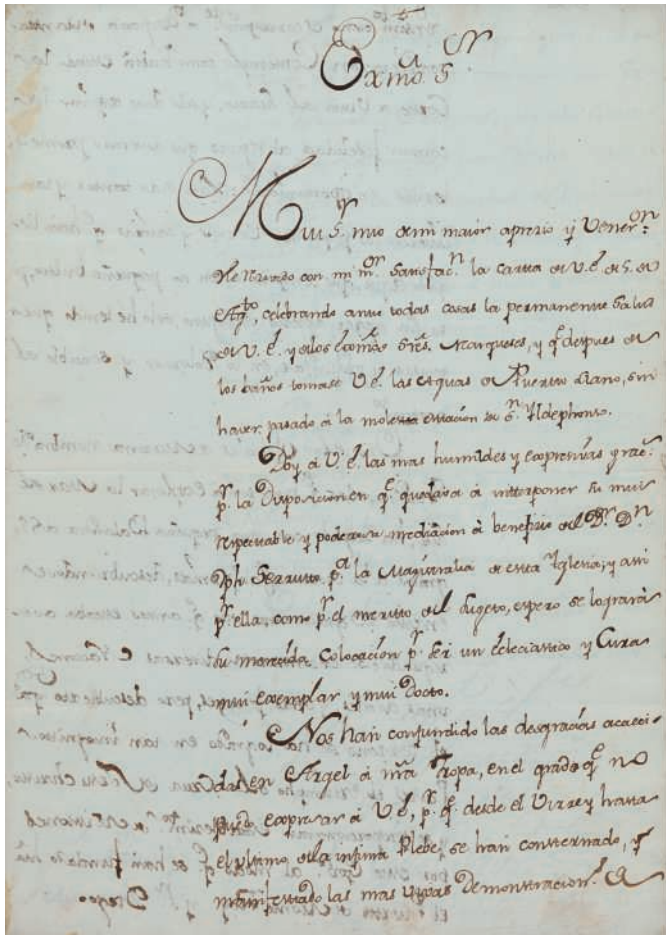 Exmô. S.ᵒʳ
Mui S.ʳ mio de mi maior aprezio y Vener.ᵒⁿ:
He recivido con mi m.ᵒʳ Satisfac.ⁿ la carta de V.E. de 5. de
Ag.ᵗᵒ, celebrando ante todas cosas la permanente Salud
de V.E. y de los Ecomᵒˢ Srẽs. Marqueses, y q.ᵉ despues de
los baños tomase V.E. las Aguas de Puerto Llano, sin
haver pasado á la molesta estación de S.ⁿ Yldephonso.
Doy á V.E. las mas humildes y expresivas grac.ˢ
p.ʳ la Disposicion en q.ᵉ quedava á interponer su mui
respectable y poderosa mediación á benefizio del D.ʳ D.ⁿ
Jph. Serrutto p.ᵃ la Magistralia de esta Yglesia; y assi
p.ʳ ella, como p.ʳ el meritto del Sugeto, espero se lograrà
su merecida Colocación p.ʳ ser un Eclesiastico y Cura
mui exemplar y mui Docto.
Nos han confundido las desgracias acaeci-
das en Argel á nrã Tropa, en el grado q.ᵉ no
puedo expresar á V.E, p.ʳ q.ᵉ desde el Virrey hasta
el ultimo de la infima Plebe, se han consternado, y
manifestado las mas vivas Demonstracion.ˢ de